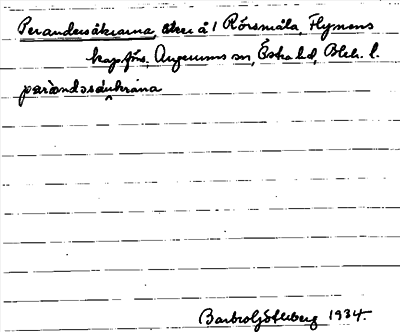 Perandersåkrarna, åkrar å 1 Rörsmåla, Flymens
kap.förs. Augerums sn, Östra hd, Blek. l.
Barbro Göteberg 1934.